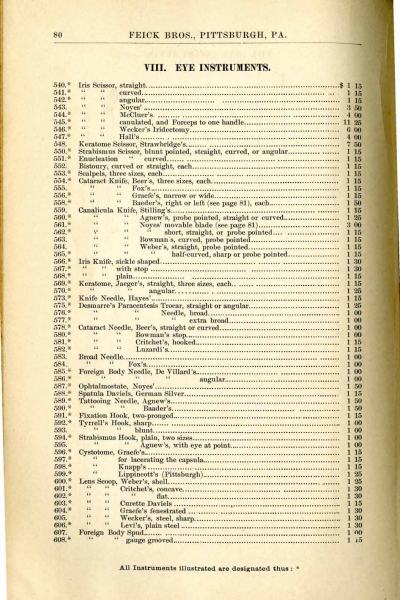 80 FEICK BROS., PITTSBURGH, PA.
VIII. EYE INSTRUMENTS.
540.* Iris Scissor, straight $ 1 15
541.* " " curved 1 15
542.* " " angular 1 15
543. " " Noyes' 3 50
544.* " " McCluer's 4 00
545.* " " canulated, and Forceps to one handle 11 25
546.* " " Wecker's Iridectomy 6 00
547.* " " Hall's 4 00
548. Keratome Scissor, Strawbridge's 7 50
550.* Strabismus Scissor, blunt pointed, straight, curved, or angular 1 15
551.* Enucleation " curved 1 15
552. Bistoury, curved or straight, each 1 15
553.* Scalpels, three sizes, each 1 15
554.* Cataract Knife, Beer's, three sizes, each 1 15
555. " " Fox's 1 15
556.* " " Graefe's, narrow or wide 1 15
558.* " " Baeder's, right or left (see page 81), each 1 50
559. Canalicula Knife, Stilling's 1 15
560.* " " Agnew's, probe pointed, straight or curved 1 25
561.* " " Noyes' movable blade (see page 81) 3 00
562.* " " " short, straight, or probe pointed 1 15
563. " " Bowman's, curved, probe pointed 1 15
564. " " Weber's, straight, probe pointed 1 15
565.* " " " half-curved, sharp or probe pointed 1 15
566.* Iris Knife, sickle shaped 1 30
567.* " " with stop 1 30
568.* " " plain 1 15
569.* Keratome, Jaeger's, straight, three sizes, each 1 15
570.* " " angular 1 25
573.* Knife Needle, Hayes' 1 15
575.* Desmarre's Paracentesis Trocar, straight or angular 1 25
576.* " " Needle, broad 1 00
577.* " " " extra broad 1 00
578.* Cataract Needle, Beer's, straight or curved 1 00
580.* " " Bowman's stop 1 00
581.* " " Critchet's, hooked 1 15
582.* " " Luzardi's 1 15
583. Broad Needle 1 00
584. " " Fox's 1 00
585.* Foreign Body Needle, De Villard's 1 00
586.* " " " " angular 1 00
587.* Ophtalmostate, Noyes' 1 50
588.* Spatula Daviels, German Silver 1 15
589.* Tattooing Needle, Agnew's 1 50
590.* " " Baader's 1 50
591.* Fixation Hook, two-pronged 1 15
592.* Tyrrell's Hook, sharp 1 00
593. " " blunt 1 00
594.* Strabismus Hook, plain, two sizes 1 00
595. " " Agnew's, with eye at point 1 00
596.* Cystotome, Graefe's 1 15
597.* " for lacerating the capsula 1 15
598.* " Knapp's 1 15
599.* " Lippincott's (Pittsburgh) 1 25
600.* Lens Scoop, Weber's, shell 1 25
601.* " " Critchet's, concave 1 30
602.* " " " flat 1 30
603.* " " Curette Daviels 1 15
604.* " " Graefe's fenestrated 1 30
605. " " Wecker's, steel, sharp 1 30
606.* " " Levi's, plain steel 1 30
607. Foreign Body Spud 1 00
608.* " " " gauge grooved 1 15
All Instruments illustrated are designated thus: *